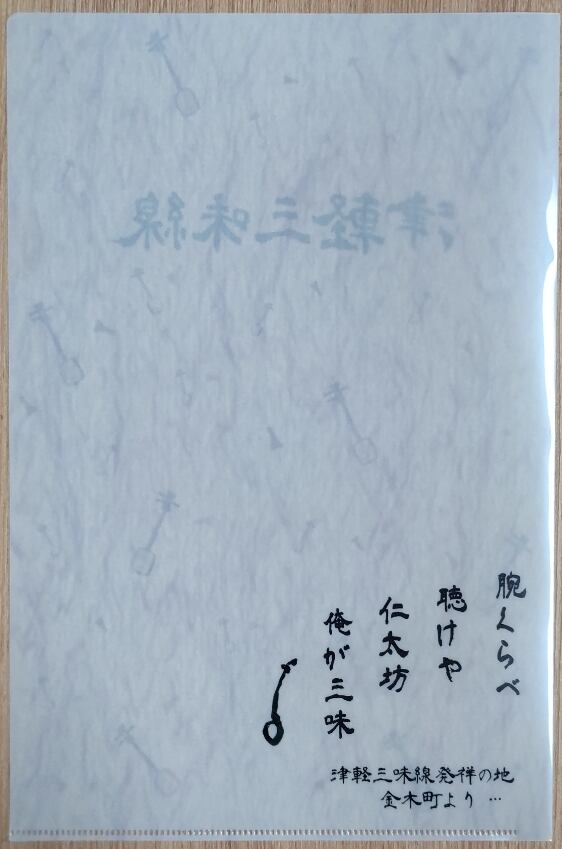 津軽三味線
腕くらべ
聴けや
仁太坊
俺が三味
津軽三味線発祥の地
金木町より …